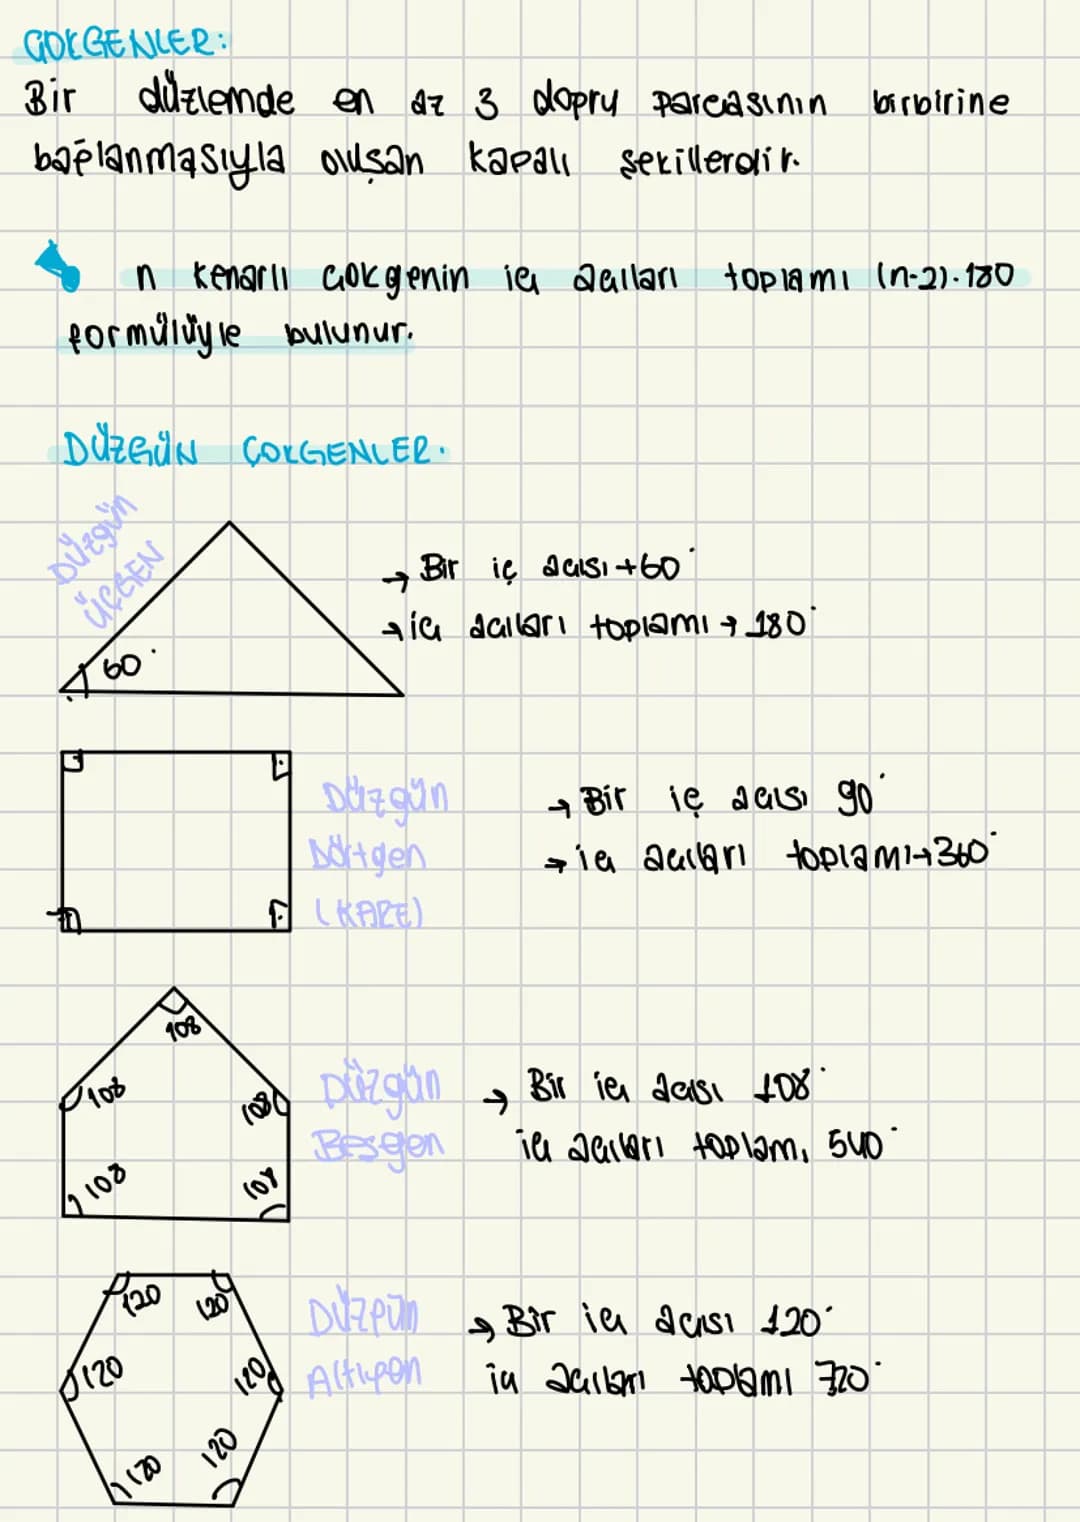 ÇOKGENLER:
Bir düzlemde en az 3 doğru parçasının birbirine
bağlanmasıyla oluşan kapalı şekillerdir.
n kenarlı çokgenin iç açıları toplamı (n-2).180
formülüyle bulunur.
DÜZGÜN ÇOKGENLER.
Düzgün
ÜÇGEN
60°
→ Bir iç açısı → 60°
→ iç açıları toplamı → 180°
Düzgün
Dörtgen
(KARE)
→ Bir iç açısı 90°
→ iç açıları toplamı → 360°
108
108
108
108
108
Düzgün
Beşgen
→ Bir iç açısı 108°
iç açıları toplamı 540°
120
120
120
120
120
120
Düzgün
Altıgen
→ Bir iç açısı 120°
iç açıları toplamı 720°